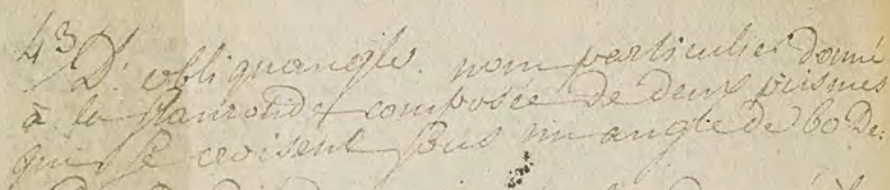 43 D. obliquangle. nom particulier donné
à la staurotide composée de deux prismes
qui se croisent sous un angle de 60 De.